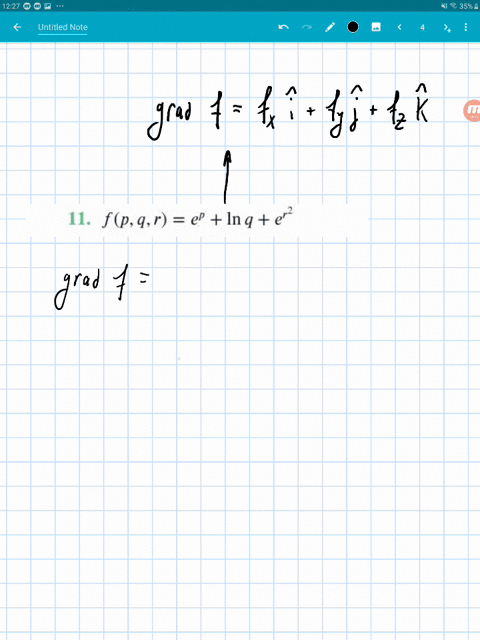 12:27 35%
Untitled Note 4
grad f = f_x î + f_y ĵ + f_z k̂
11. f(p, q, r) = e^p + ln q + e^{r^2}
grad f =